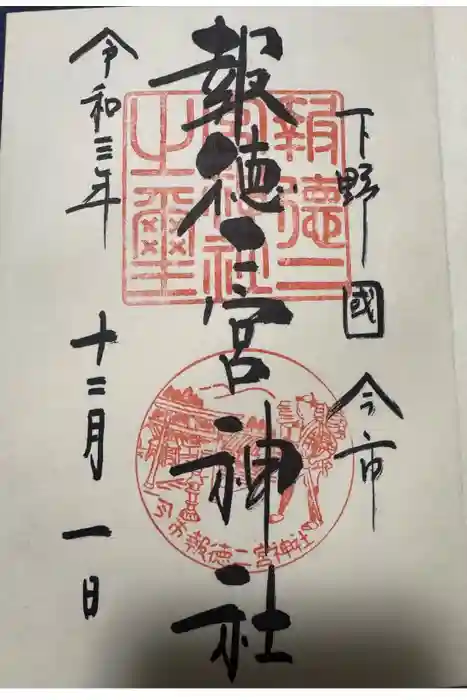 下野國 今市
報徳二宮神社
令和三年 十二月 一日
報徳二宮神社之璽
今市報徳二宮神社